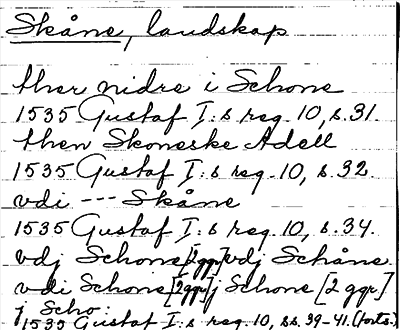 Skåne, landskap
ther nidre i Schone
1535 Gustaf I:s reg. 10, s. 31.
then Skoneske Adell
1535 Gustaf I:s reg. 10, s. 32.
vdi --- Skåne
1535 Gustaf I:s reg. 10, s. 34.
vdj Schone [2 ggr] vdj Schåne
vdi Schone [2 ggr] j Schone [2 ggr]
j Scho:
1535 Gustaf I:s reg. 10, ss. 39-41. (forts.)